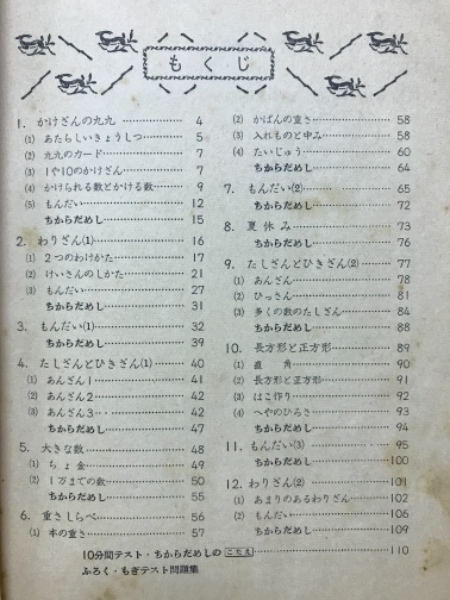 もくじ
1. かけざんの九九 …… 4
(1) あたらしいきょうしつ …… 5
(2) 九九のカード …… 7
(3) 1や10のかけざん …… 7
(4) かけられる数とかける数 …… 9
(5) もんだい …… 12
ちからだめし …… 15
2. わりざん(1) …… 16
(1) 2つのわけかた …… 17
(2) けいさんのしかた …… 21
(3) もんだい …… 27
ちからだめし …… 31
3. もんだい(1) …… 32
ちからだめし …… 39
4. たしざんとひきざん(1) …… 40
(1) あんざん1 …… 41
(2) あんざん2 …… 42
(3) あんざん3 …… 42
ちからだめし …… 47
5. 大きな数 …… 48
(1) ちょ金 …… 49
(2) 1万までの数 …… 50
ちからだめし …… 55
6. 重さしらべ …… 56
(1) 本の重さ …… 57
(2) かばんの重さ …… 58
(3) 入れものと中み …… 58
(4) たいじゅう …… 60
ちからだめし …… 64
7. もんだい(2) …… 65
ちからだめし …… 72
8. 夏休み …… 73
ちからだめし …… 76
9. たしざんとひきざん(2) …… 77
(1) あんざん …… 78
(2) ひっさん …… 81
(3) 多くの数のたしざん …… 84
ちからだめし …… 88
10. 長方形と正方形 …… 89
(1) 直角 …… 90
(2) 長方形と正方形 …… 91
(3) はこ作り …… 92
(4) へやのひろさ …… 93
ちからだめし …… 94
11. もんだい(3) …… 95
ちからだめし …… 100
12. わりざん(2) …… 101
(1) あまりのあるわりざん …… 102
(2) もんだい …… 106
ちからだめし …… 109
10分間テスト・ちからだめしの こたえ …… 110
ふろく・もぎテスト問題集